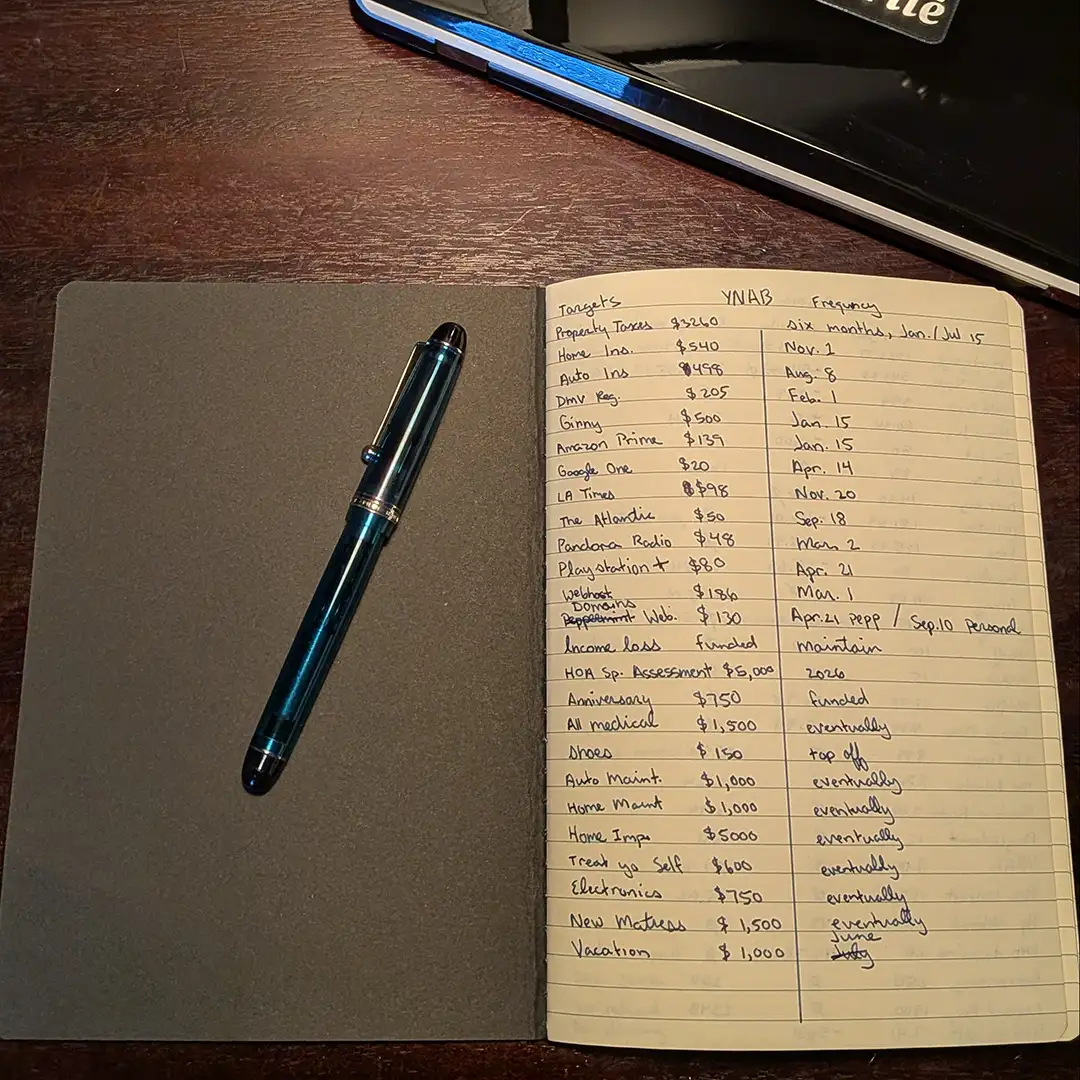 Targets YNAB Frequncy
Property Taxes $3260 six months, Jan./Jul 15
Home Ins. $540 Nov. 1
Auto Ins $498 Aug. 8
DMV Reg. $205 Feb. 1
Ginny $500 Jan. 15
Amazon Prime $139 Jan. 15
Google One $20 Apr. 14
LA Times $98 Nov. 20
The Atlantic $50 Sep. 18
Pandora Radio $48 Mar. 2
Playstation + $80 Apr. 21
Webhost $186 Mar. 1
Domains
Peppermint Web. $130 Apr. 21 pepp / Sep. 10 personal
Income loss funded maintain
HOA Sp. Assessment $5,000 2026
Anniversary $750 funded
All medical $1,500 eventually
Shoes $150 top off
Auto Maint. $1,000 eventually
Home Maint $1,000 eventually
Home Imp. $5000 eventually
Treat yo Self $600 eventually
Electronics $750 eventually
New Matress $1,500 eventually
June
Vacation $1,000 July